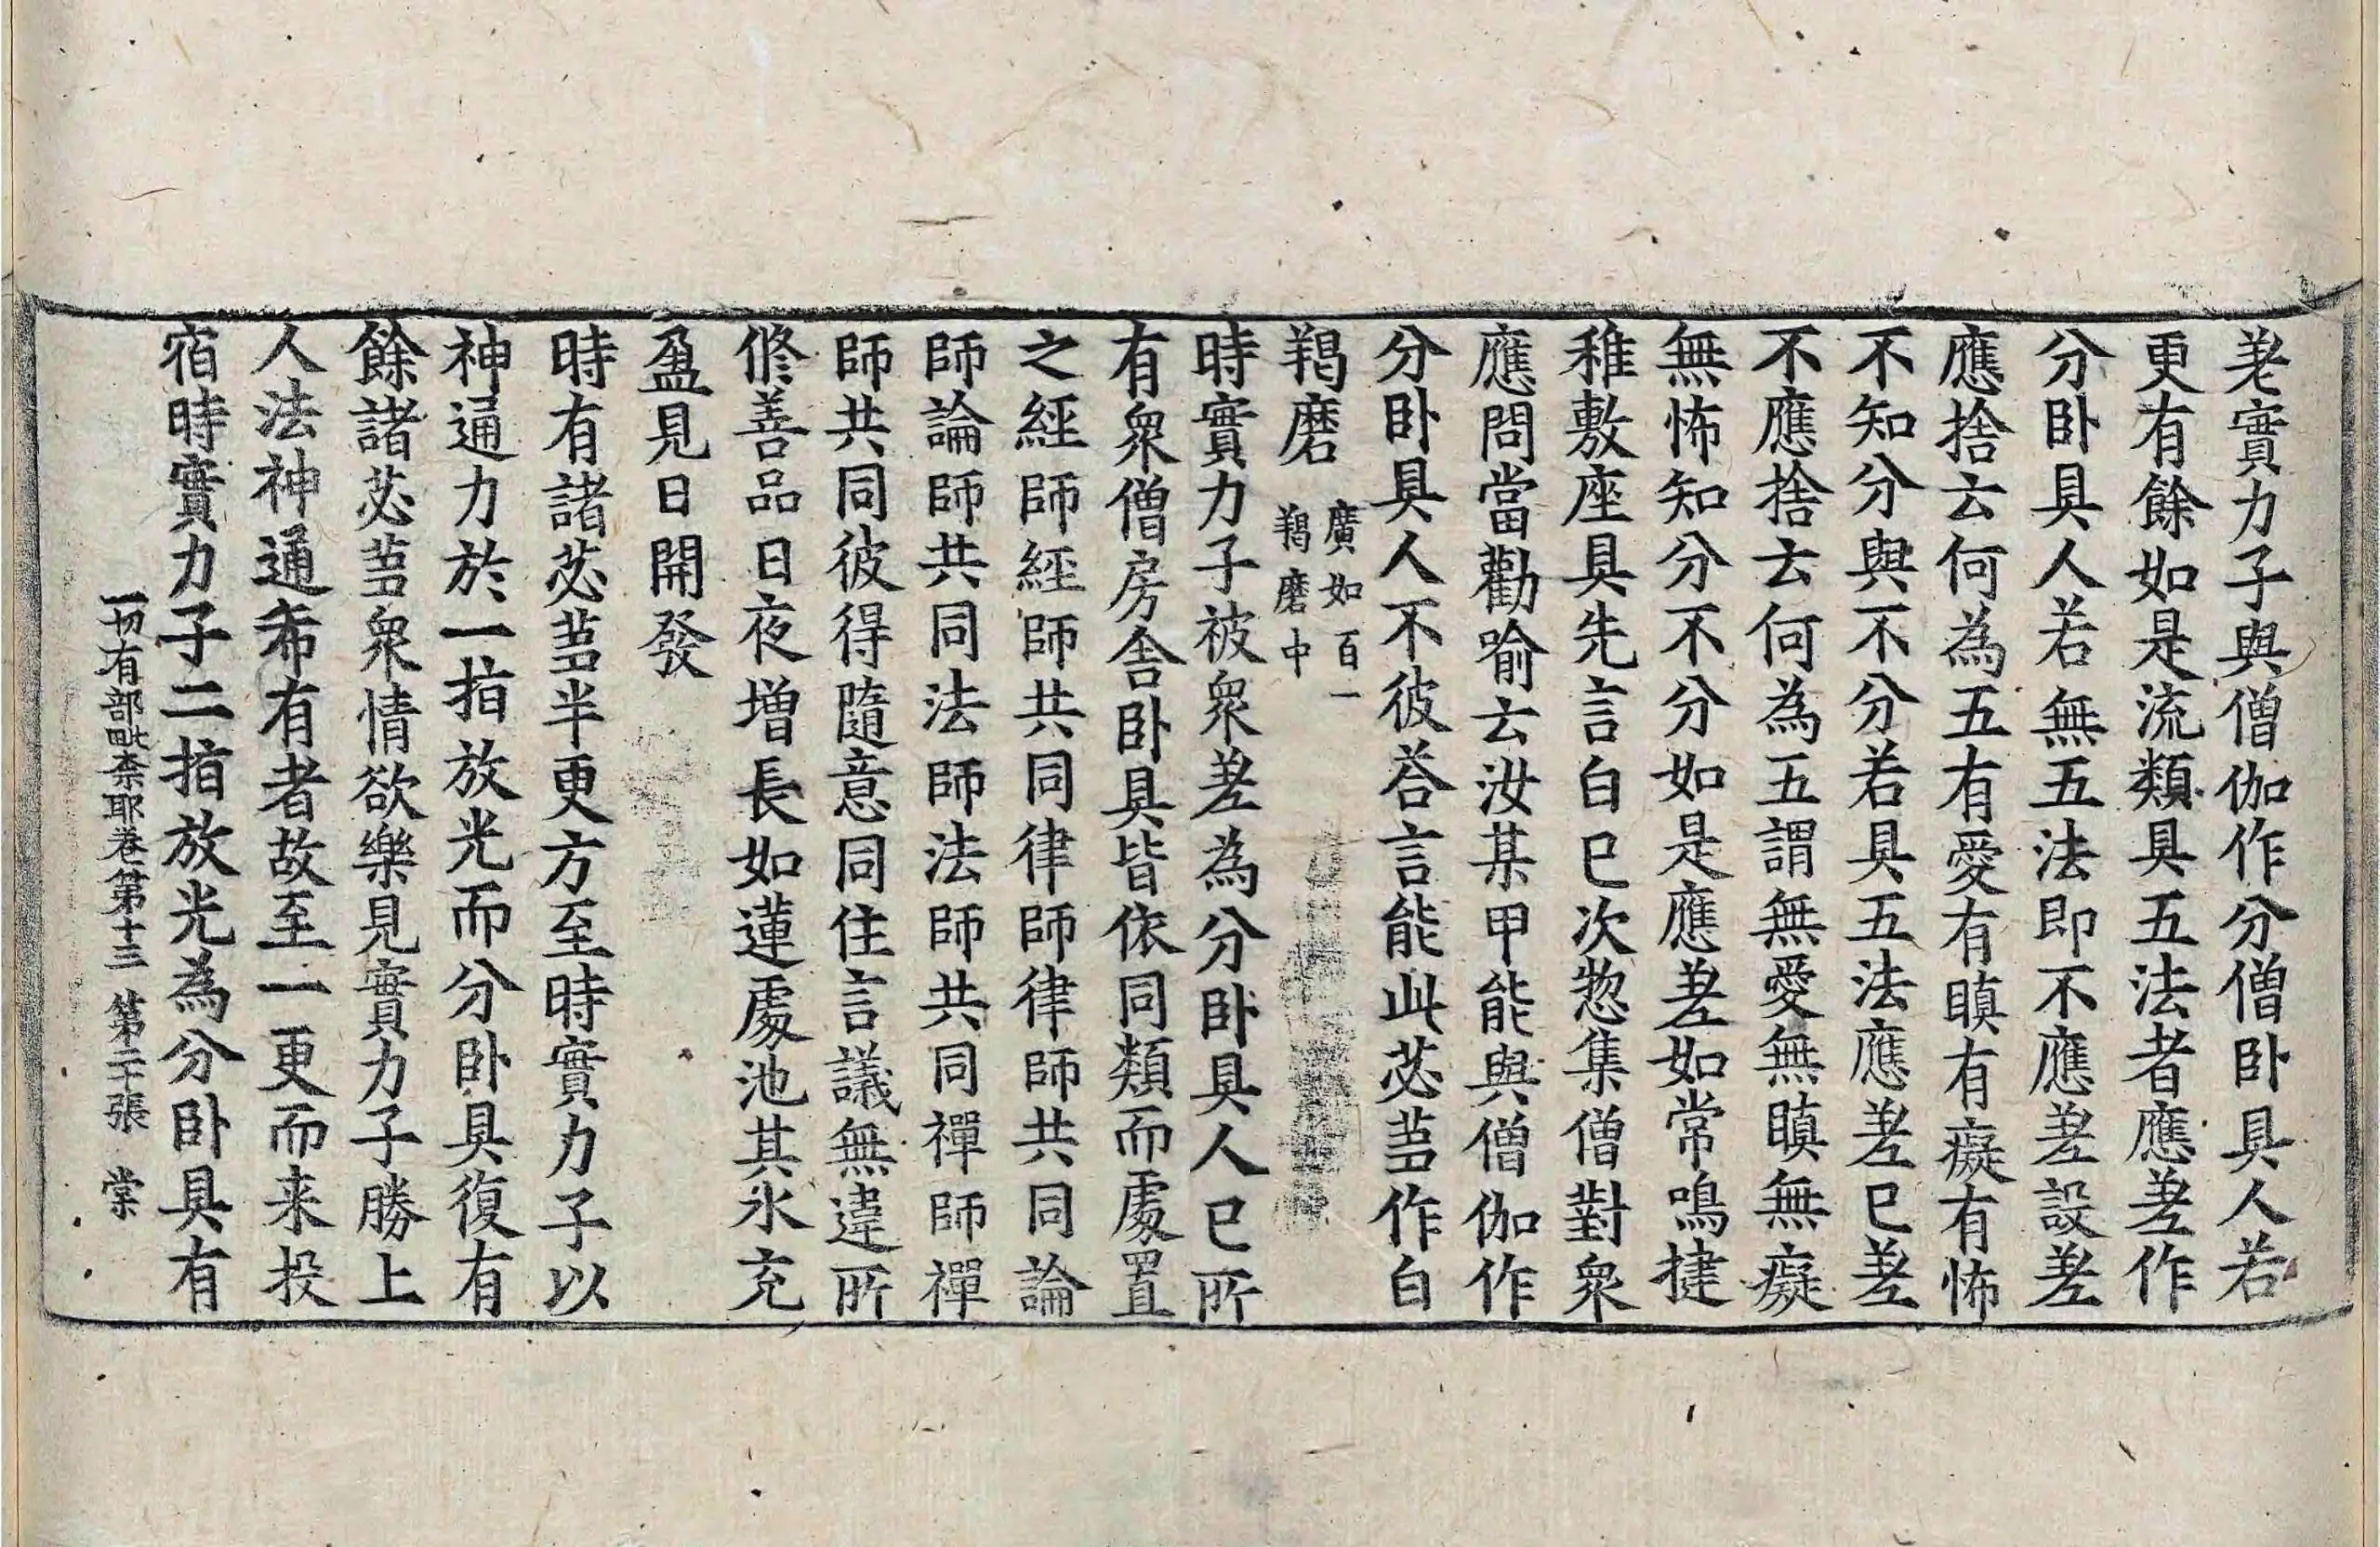 差實力子與僧伽作分僧卧具人若
更有餘如是流類具五法者應差作
分卧具人若無五法即不應差設差
應捨云何為五有愛有瞋有癡有怖
不知分與不分若具五法應差已差
不應捨云何為五謂無愛無瞋無癡
無怖知分不分如是應差如常鳴揵
稚敷座具先言白已次惣集僧對衆
應問當勸喻云汝某甲能與僧伽作
分卧具人不彼荅言能此苾蒭作白
羯磨
廣如百一
羯磨中
時實力子被衆差為分卧具人已所
有衆僧房舎卧具皆依同類而處置
之經師經師共同律師律師共同論
師論師共同法師法師共同禪師禪
師共同彼得隨意同住言議無違所
修善品日夜增長如蓮處池其水充
盈見日開發
時有諸苾蒭半更方至時實力子以
神通力於一指放光而分卧具復有
餘諸苾蒭衆情欲樂見實力子勝上
人法神通希有者故至一更而来投
宿時實力子二指放光為分卧具有
一切有部毗柰耶卷第十三 第二十張 棠